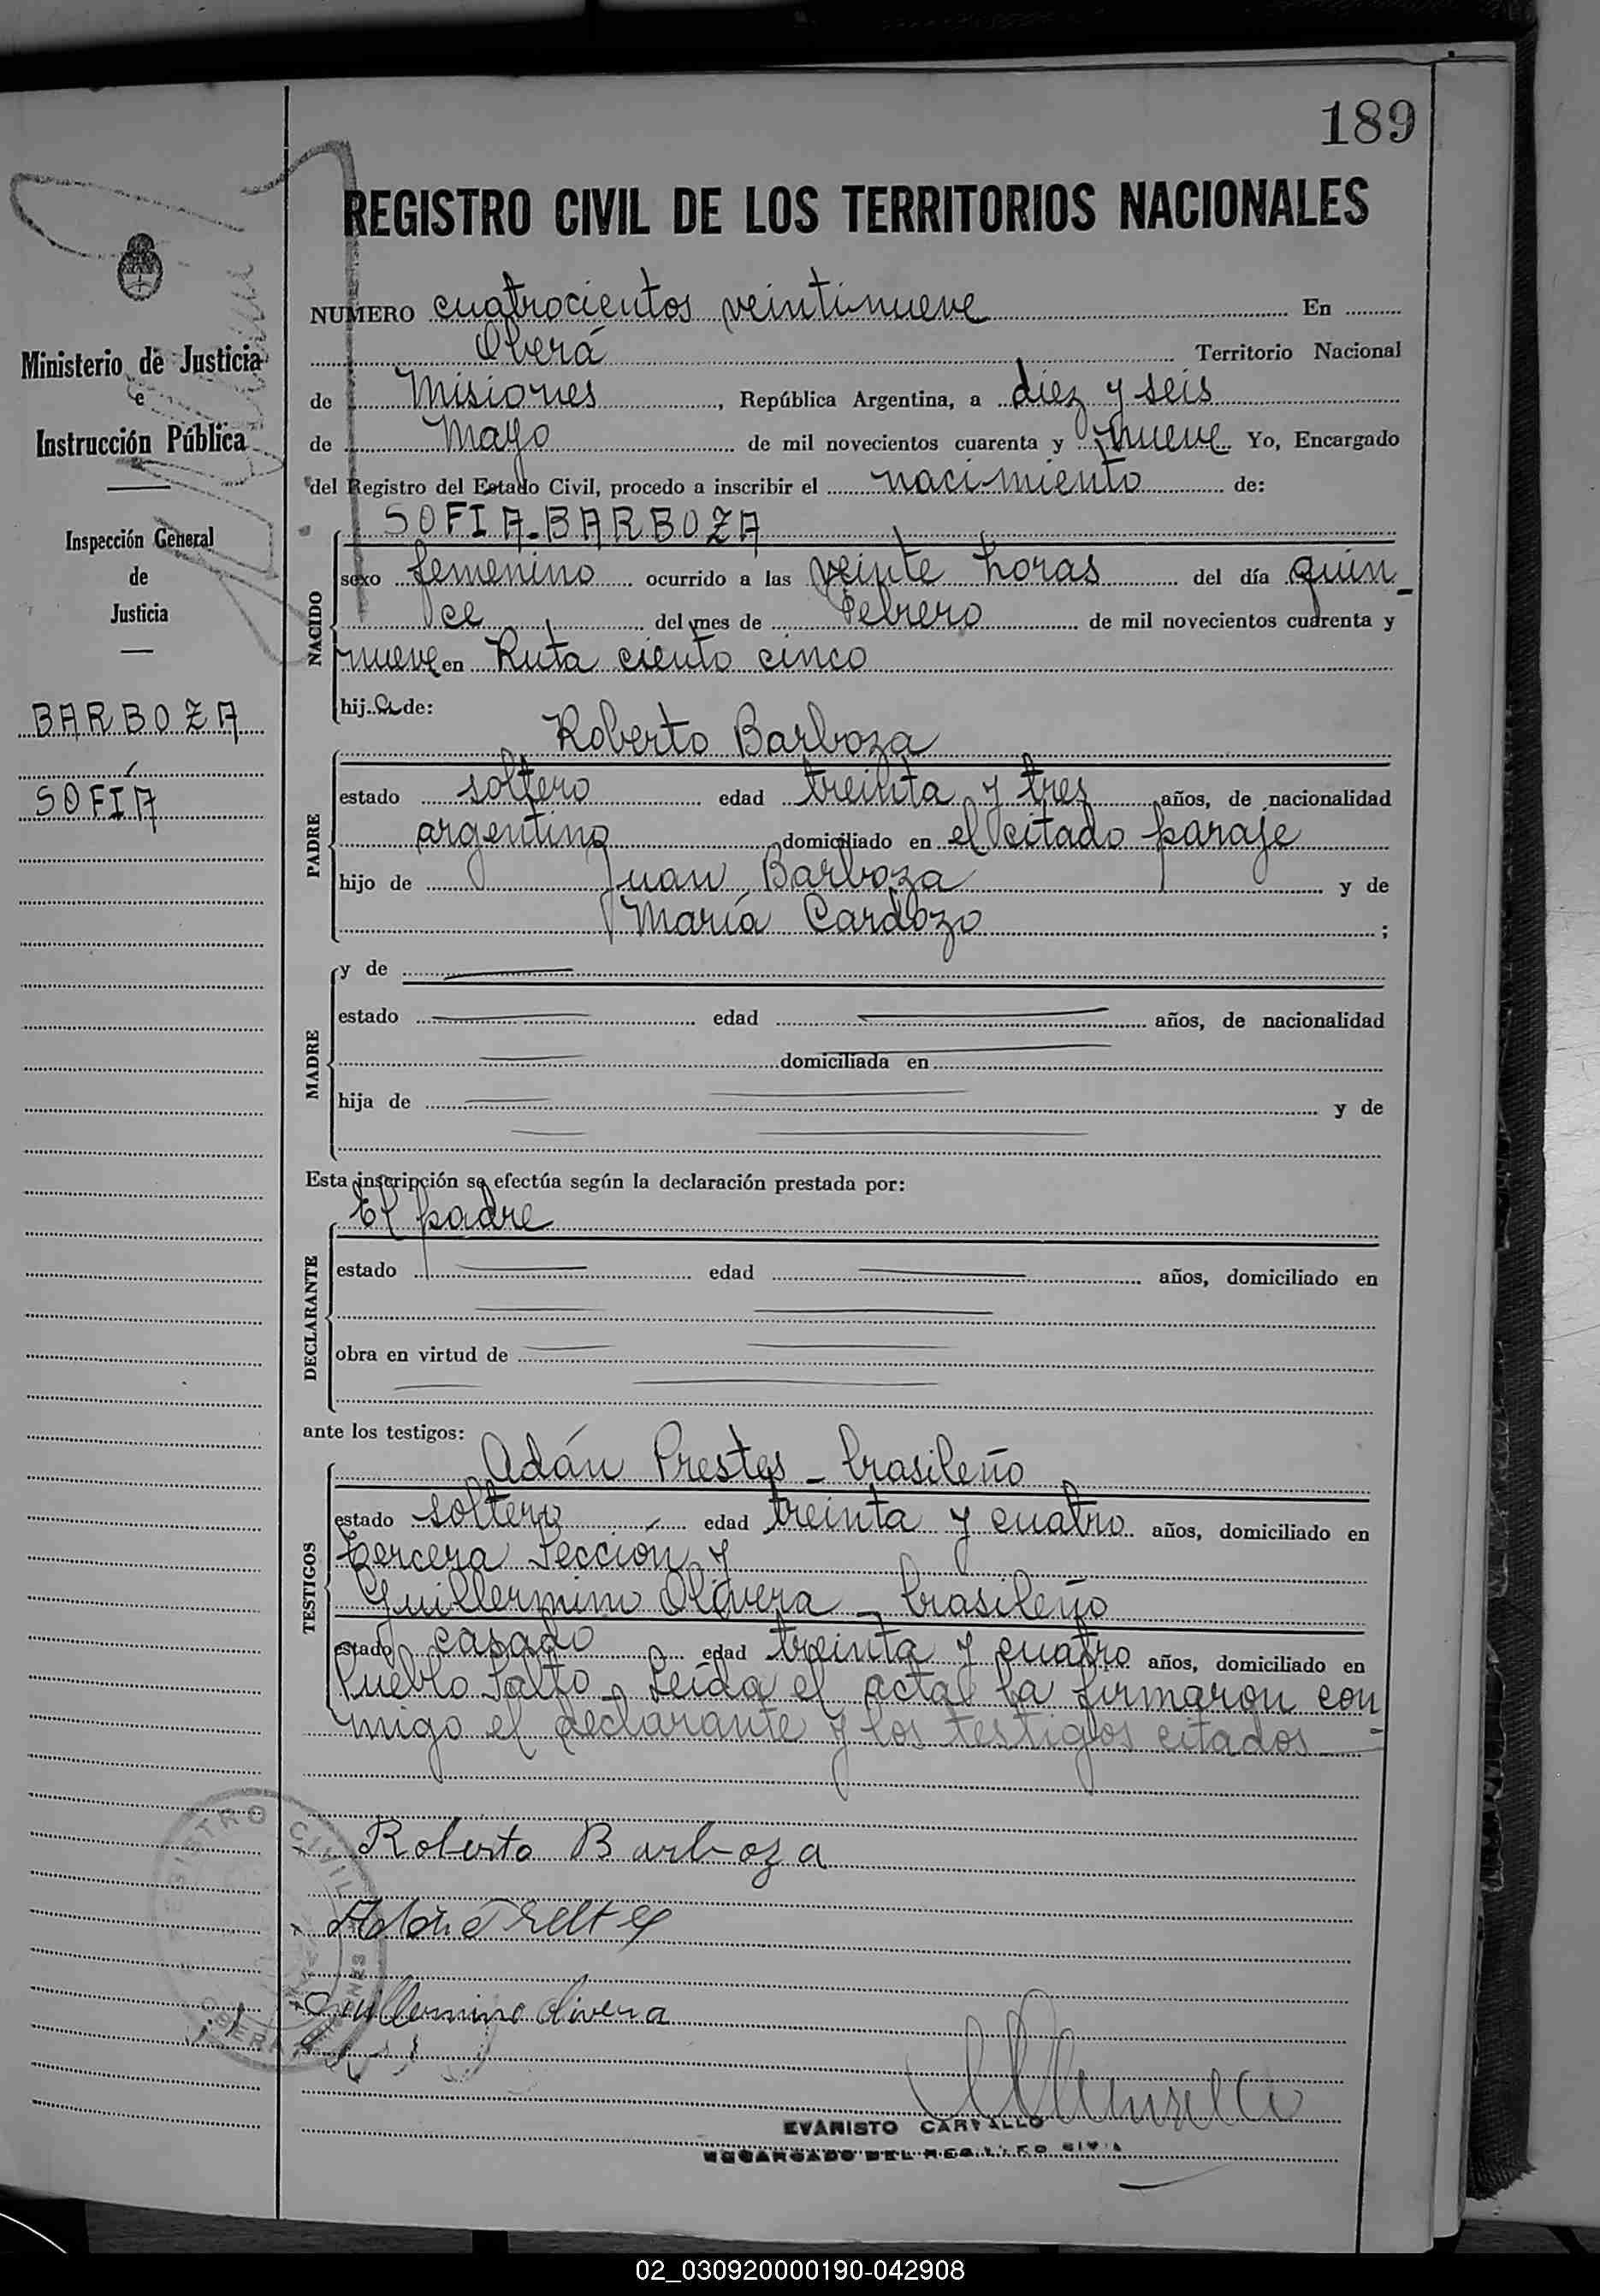 189
REGISTRO CIVIL DE LOS TERRITORIOS NACIONALES
Ministerio de Justicia
e
Instrucción Pública
Inspección General
de
Justicia
BARBOZA
SOFÍA
NUMERO cuatrocientos veintinueve En
Oberá Territorio Nacional
de Misiones, República Argentina, a diez y seis
de Mayo de mil novecientos cuarenta y nueve Yo, Encargado
del Registro del Estado Civil, procedo a inscribir el nacimiento de:
SOFIA-BARBOZA
NACIDO
sexo femenino ocurrido a las veinte horas del día quin-
ce del mes de Febrero de mil novecientos cuarenta y
nueve en Ruta ciento cinco
hija de:
Roberto Barboza
PADRE
estado soltero edad treinta y tres años, de nacionalidad
argentino domiciliado en el citado paraje
hijo de Juan Barboza y de
María Cardozo ;
MADRE
y de
estado edad años, de nacionalidad
domiciliada en
hija de y de
Esta inscripción se efectúa según la declaración prestada por:
El padre
DECLARANTE
estado edad años, domiciliado en
obra en virtud de
ante los testigos:
Adán Prestes - brasileño
TESTIGOS
estado soltero edad treinta y cuatro años, domiciliado en
tercera Sección y
Guillermino Olivera - brasileño
estado casado edad treinta y cuatro años, domiciliado en
Pueblo Salto - Leída el acta la firmaron con
migo el declarante y los testigos citados
Roberto Barboza
Guillermino Olivera
REGISTRO CIVIL
OBERA MISIONES
EVARISTO CARVALLO
ENCARGADO DEL REGISTRO CIVIL
02_030920000190-042908